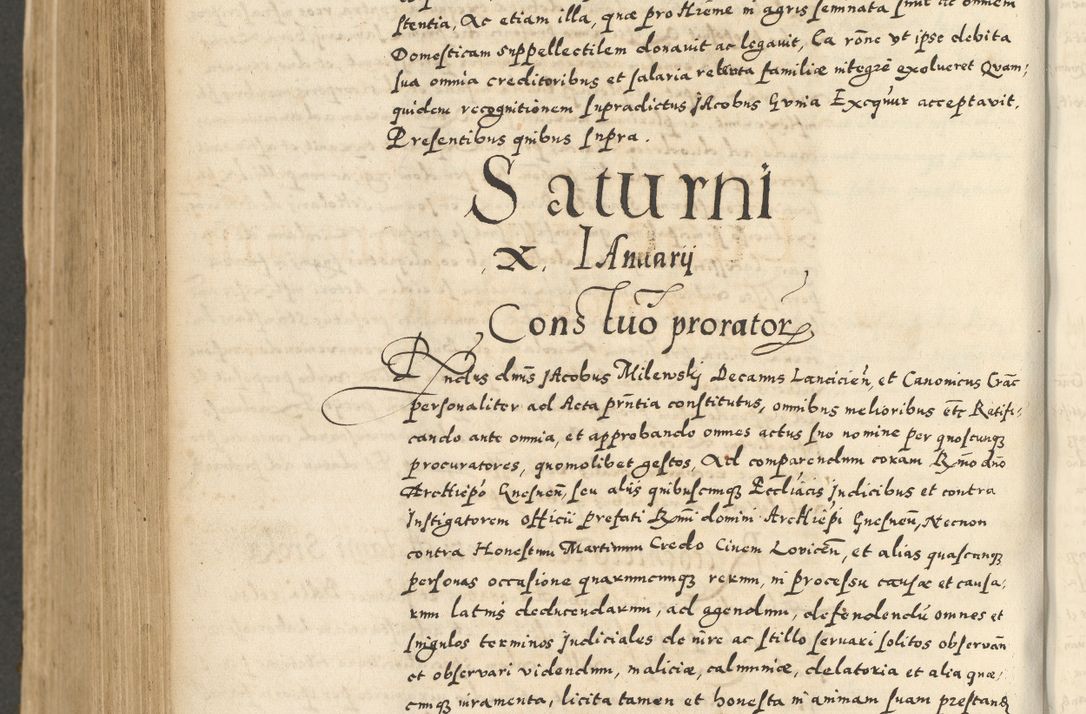 stentia, Ac etiam illa, quæ pro Hieme in agris semnata sunt ac omnem
Domesticam suppellectilem donavit ac legavit, Ea rōne ut ipse debita
sua omnia creditoribus et salaria retenta familiæ integrē exolueret Quam:
quidem recognitionem supradictus JAcobus Gunia acceptavit.
Presentibus quibus supra.
Saturni
.X. IAnuarij
Constitutio procurator
Rndus dnus JAcobus Milewskj Decanus Lancicien, et Canonicus Crac
personaliter ad Acta prntia constitutus, omnibus melioribus etc Ratifi:
cando ante omnia, et approbando omnes actus suo nomine per quoscunq
procuratores, quomolibet gestos, Ad comparendum coram Rmo dno
ArcHiepo Gnesnen, seu aliis quibuscunq Eccliacis Judicibus et contra
Instigatorem officii prefati Rmi domini ArcHiepi Gnesnen, Necnon
contra Honestum Martinum Credo Civem Lovicen, et alias quascunq
personas occasione quarumcunq rerum, in processu causæ et causa:
rum latius deducendarum, ad agendum, defendendū omnes et
singulos terminos Judiciales de iure ac stillo servari solitos observan
et observari videndum, maliciæ, calumniæ, delatoria et alia quæ:
cunq iuramenta, licita tamen et honesta in animam suam prestand